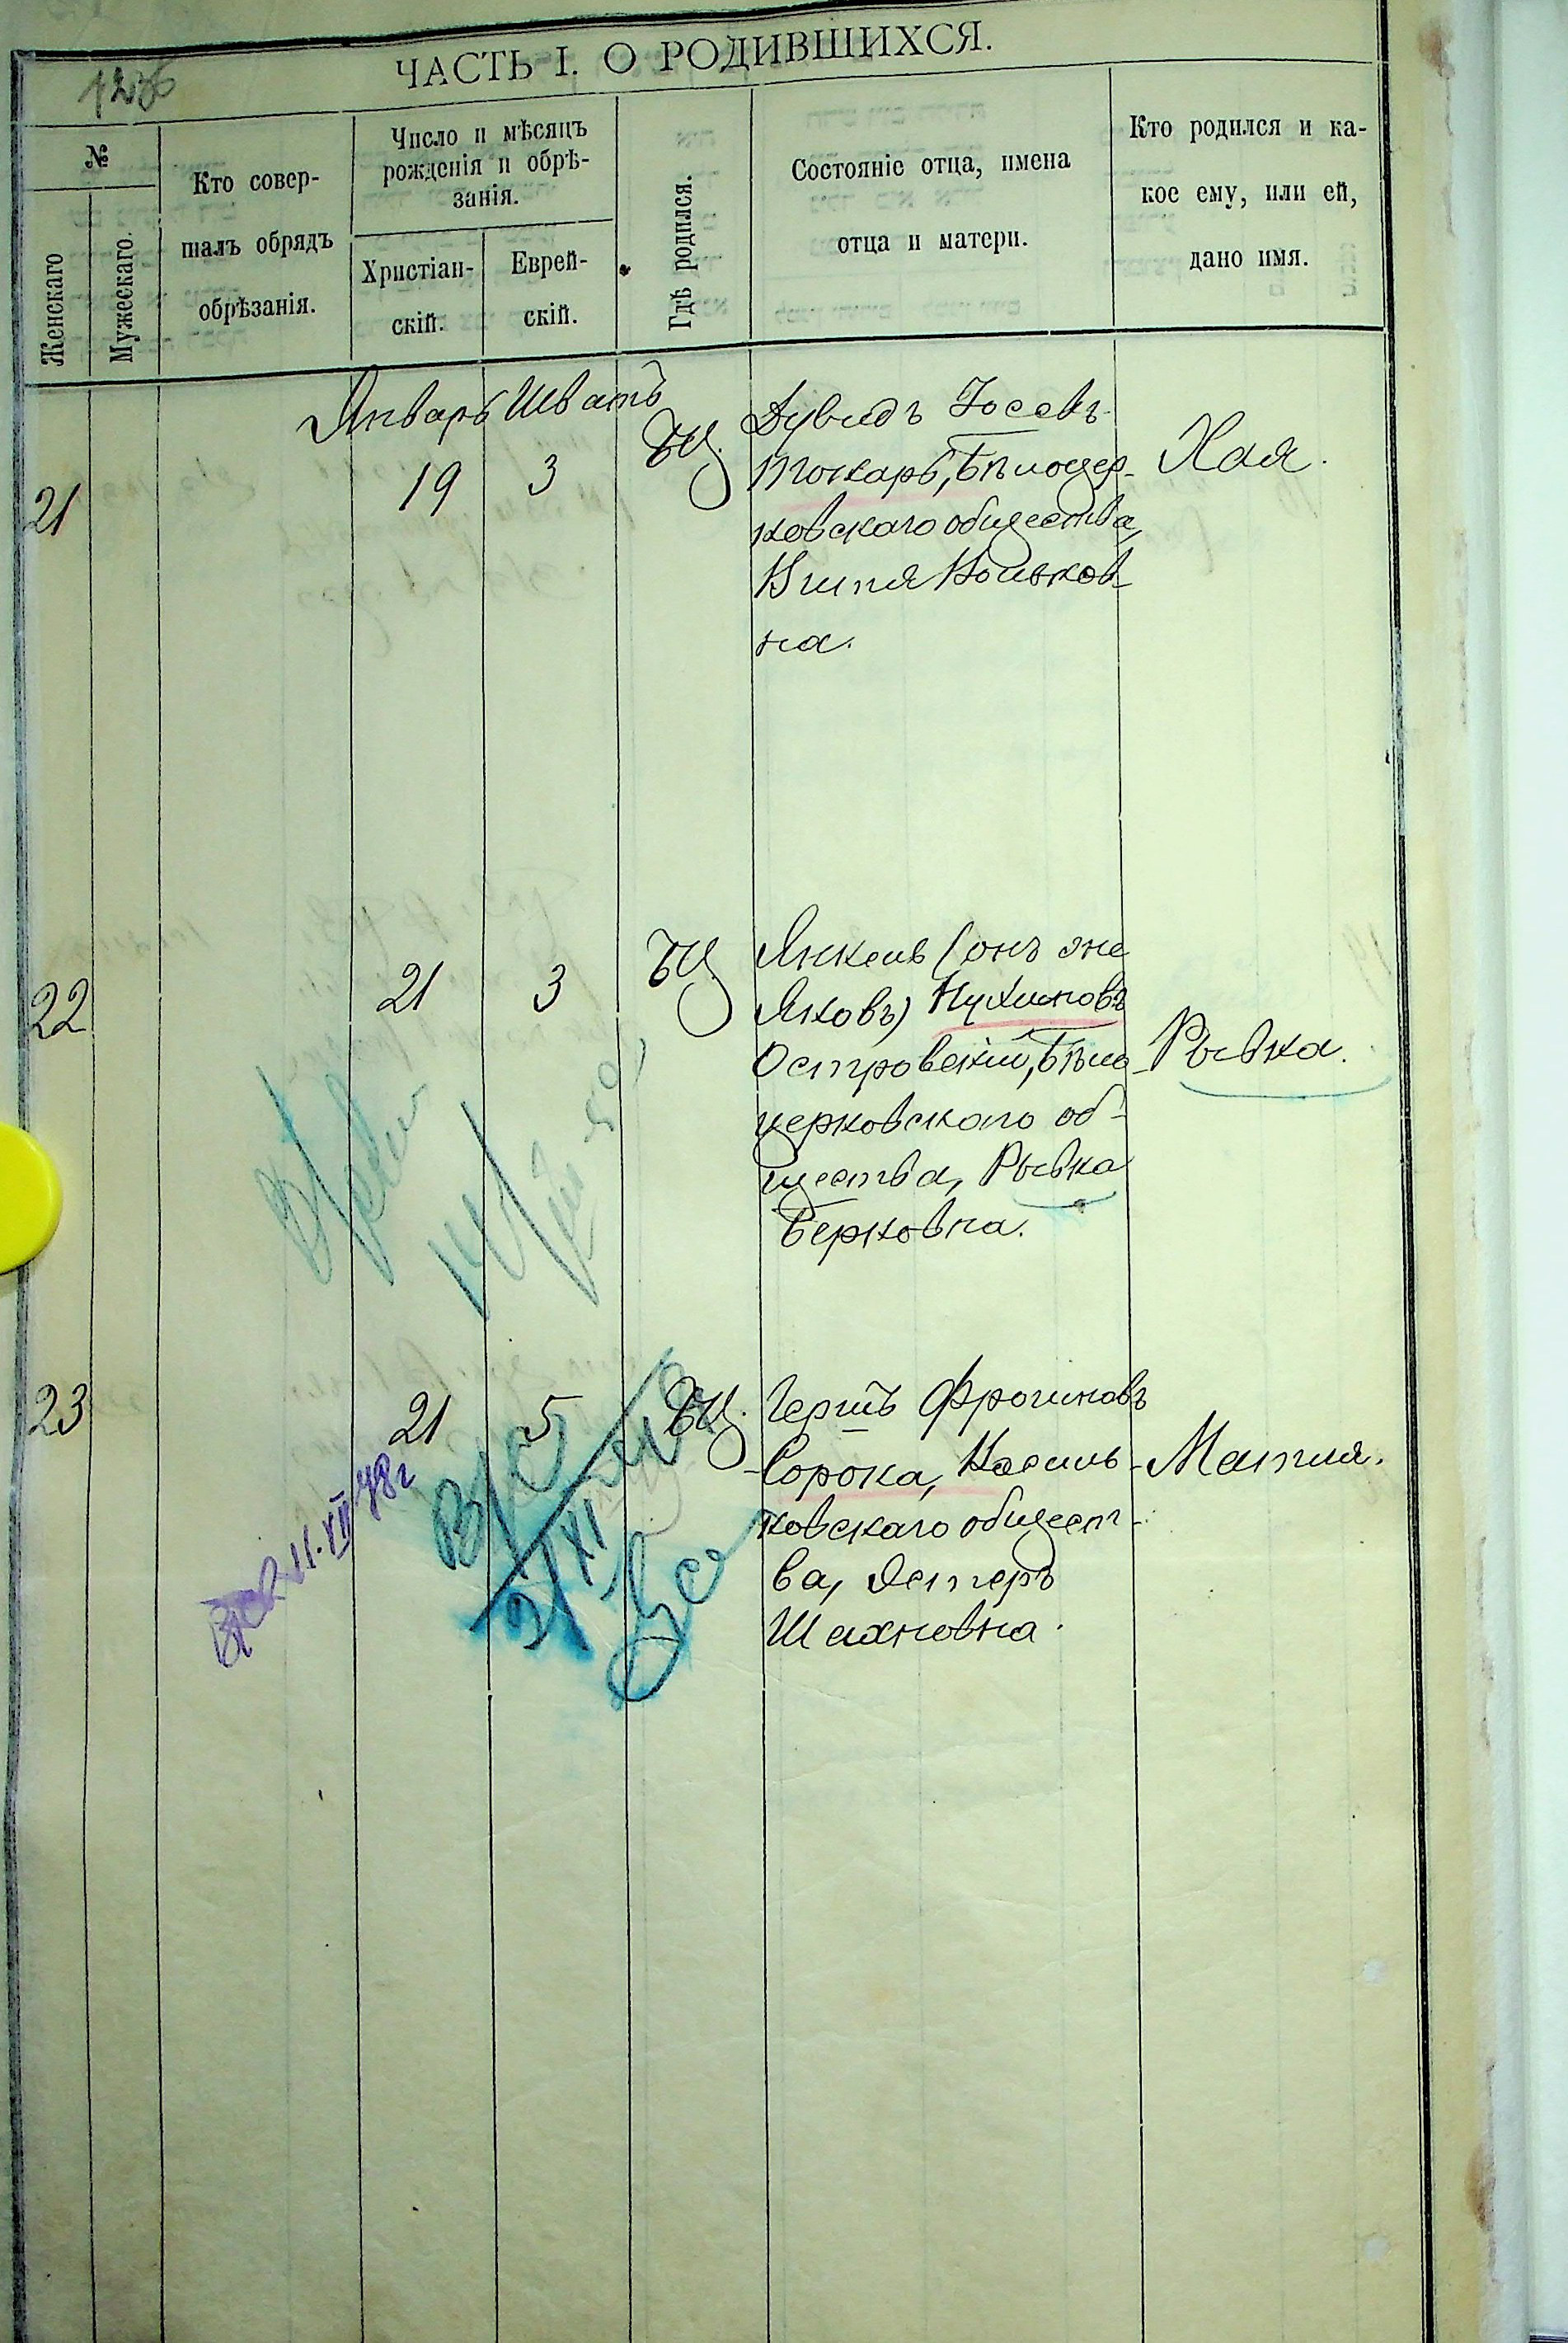 1236
ЧАСТЬ I. О РОДИВШИХСЯ.
№
Женскаго
Мужескаго.
Кто совер-
шалъ обрядъ
обрѣзанія.
Число и мѣсяцъ
рожденія и обрѣ-
занія.
Христіан-
скій.
Еврей-
скій.
Гдѣ родился.
Состояніе отца, имена
отца и матери.
Кто родился и ка-
кое ему, или ей,
дано имя.
Январь Шватъ
21
19
3
БЦ.
Дувидъ Іосевъ
Токарь, Бѣлоцер-
ковскаго общества,
Вольков-
на.
Хая.
22
21
3
БЦ.
Янкель (онъ же
Яковъ) Нухимовъ
Островскій, Бѣло-
церковскаго об-
щества, Рывка
Берковна.
Рывка.
23
21
5
БЦ.
Гершъ Фроимовъ
Сорока, Василь-
ковскаго общест-
ва, Эстеръ
Шахновна.
Матля.
11.XII 48г